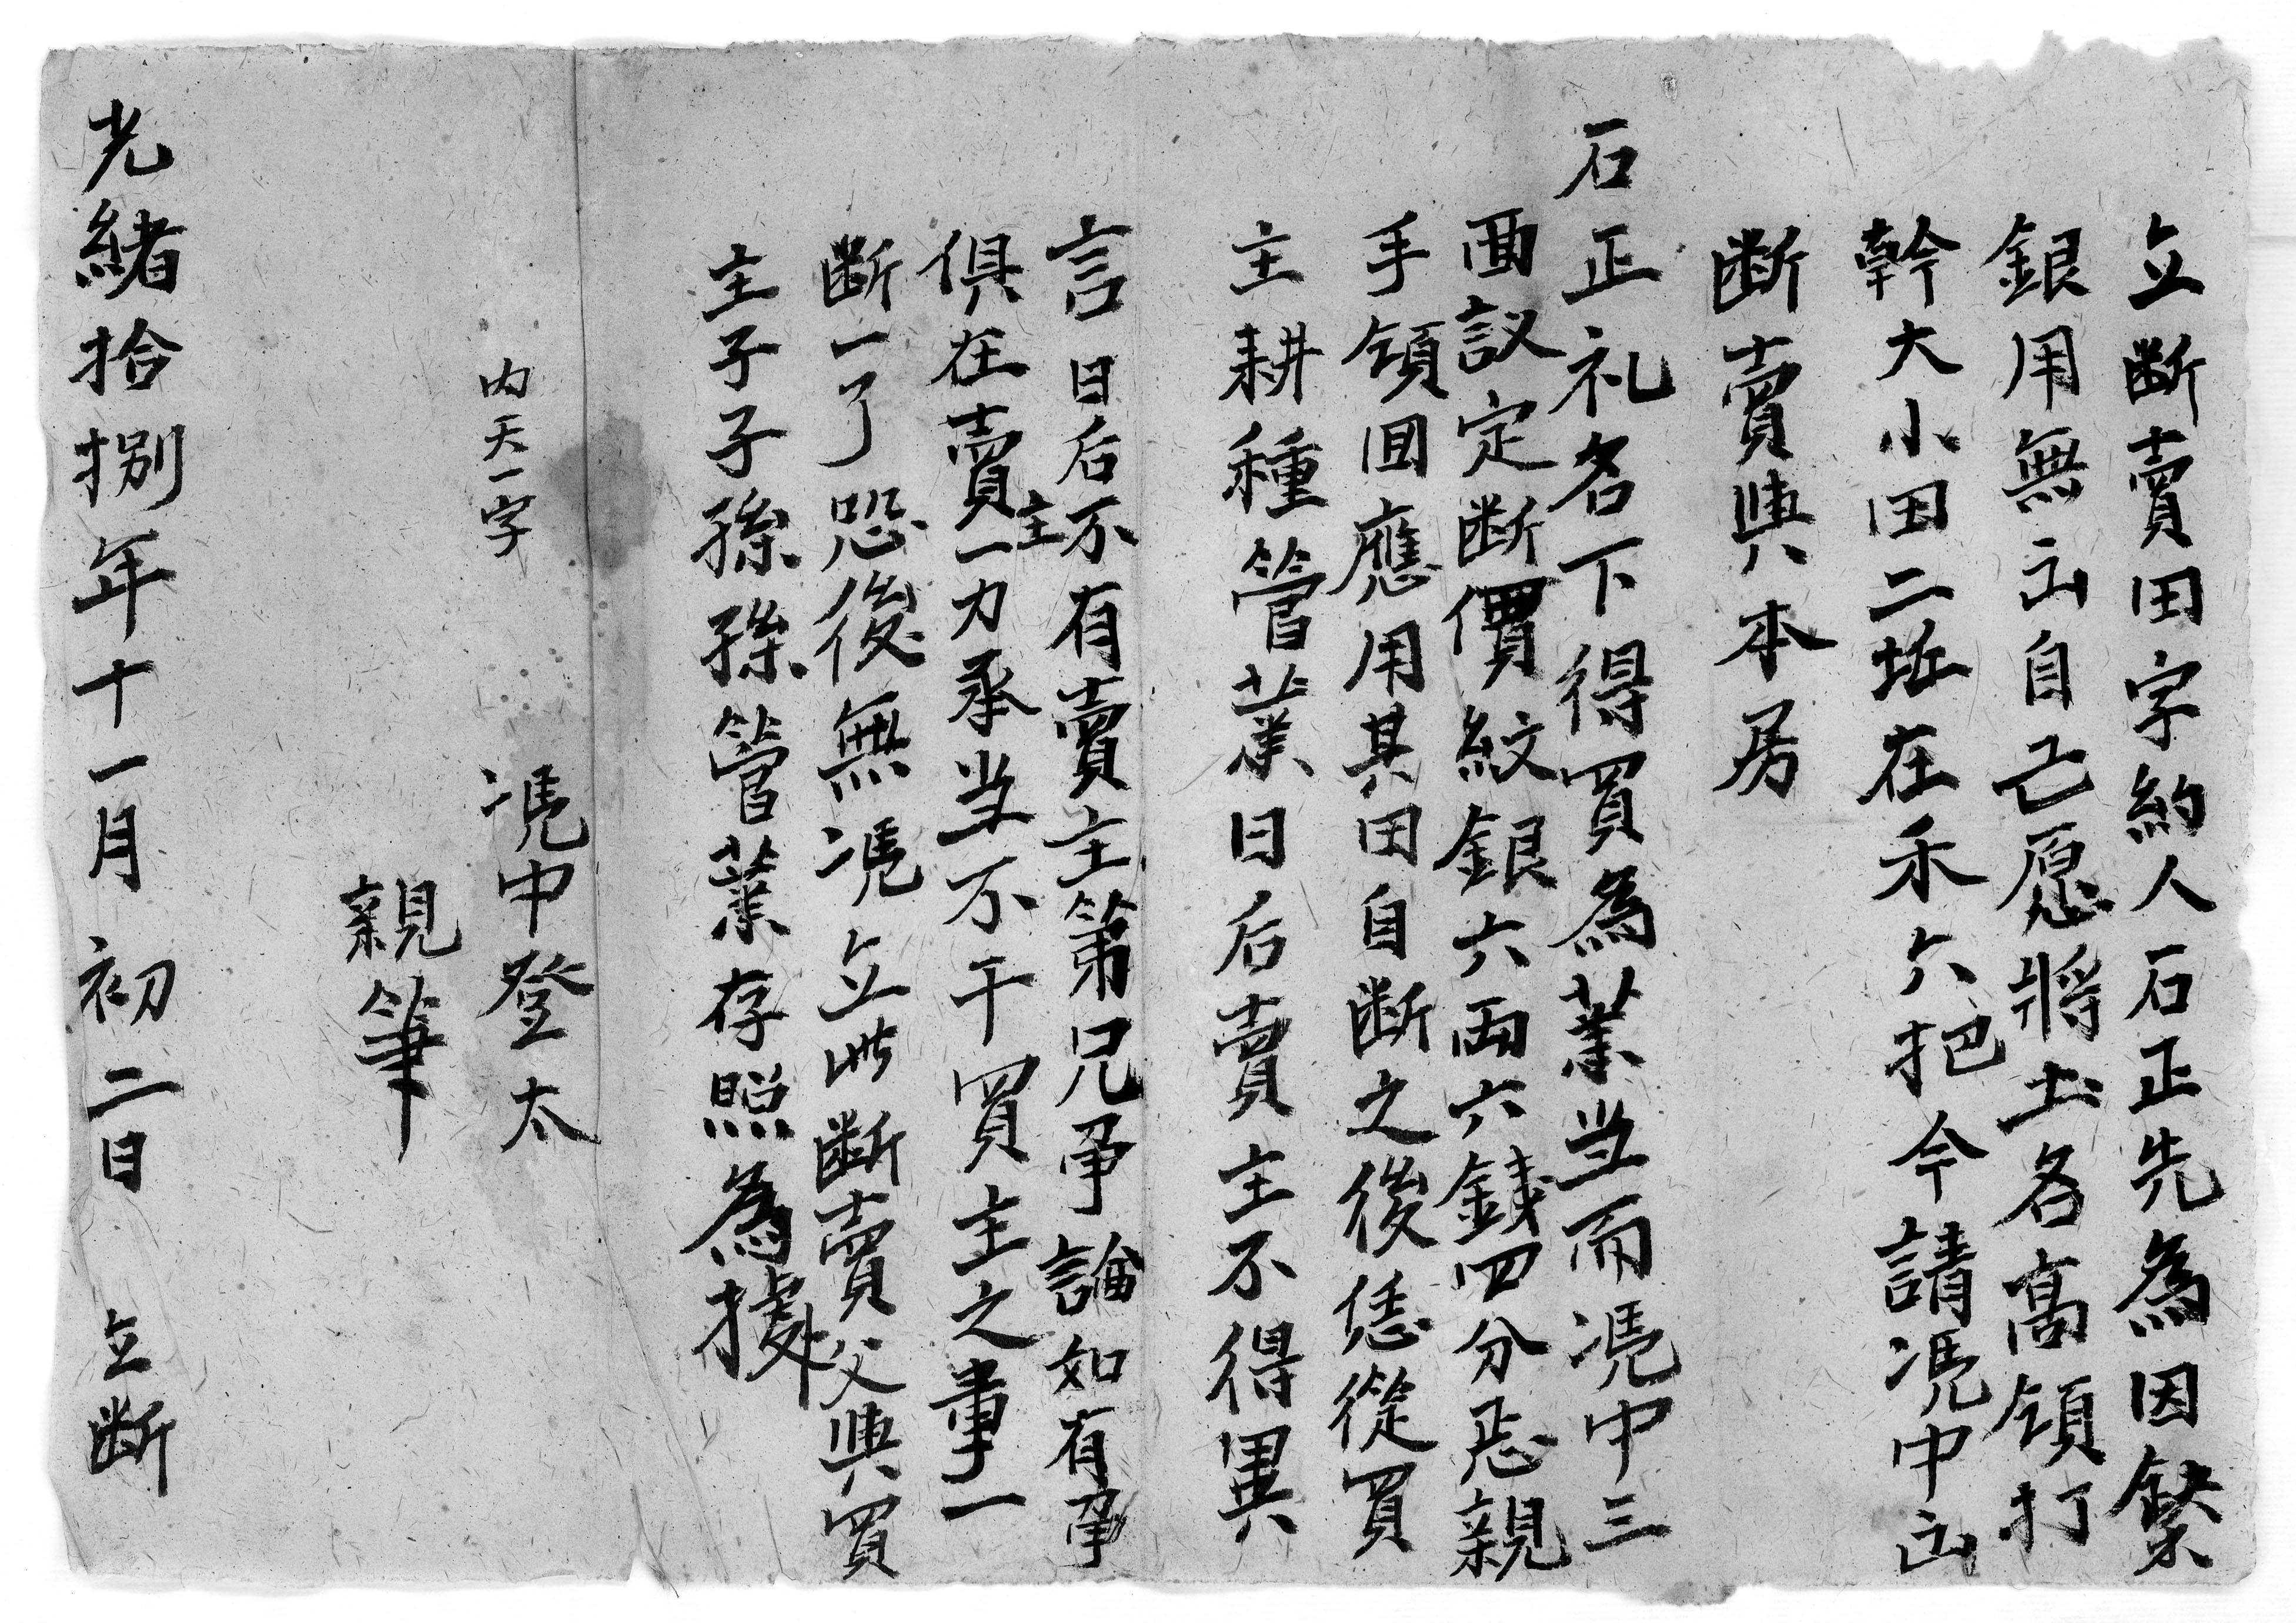 立断賣田字約人石正先為因緊
銀用無出自己愿將土名高領打
幹大小田二坵在禾六把今請凴中出
断賣與本房
石正礼名下得買為業当面凴中三
面議定断價紋銀六両六錢四分忍親
手領囬應用其田自断之後恁從買
主耕種管業日后賣主不得異
言日后不有賣主第兄爭論如有爭
俱在賣主一力承当不干買主之事一
断一了恐後無凴立此断賣父與買
主子子孫孫管業存照為據
内天一字
凴中登太
親筆
光緒拾捌年十一月初二日 立断